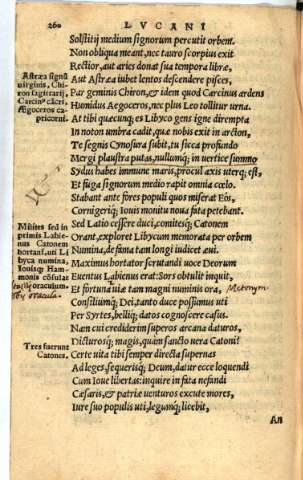 260 LVCANI
Solstitij medium signorum percutit orbem.
Non obliqua meant, nec tauro scorpius exit
Rectior, aut aries donat sua tempora libræ,
Astræa signũ
uirginis, Chi
ron sagittarij,
Carcinꝰ cãcri,
Aegoceros ca
pricorni.
Aut Astræa iubet lentos descendere pisces,
Par geminis Chiron, & idem quod Carcinus ardens
Humidus Aegoceros, nec plus Leo tollitur urna.
At tibi quæcunq; es Libyco gens igne dirempta
In noton umbra cadit, quæ nobis exit in arcton,
Te segnis Cynosura subit, tu sicca profundo
Mergi plaustra putas, nullumq; in uertice summo
Sydus habes immune maris, procul axis uterq; est,
Et fuga signorum medio rapit omnia cœlo.
Stabant ante fores populi quos miserat Eos,
Cornigeriq; Iouis monitu noua fata petebant.
Milites sed in
primis Labie
nus Catonem
hortant, uti Li
byca numina,
Iouisq; Ham
monis cõsulat
oraculum.
Sed Latio cessere duci, comitesq; Catonem
Orant, exploret Libycum memorata per orbem
Numina, de fama tam longi iudicet æui.
Maximus hortator scrutandi uoce Deorum
Euentus Labienus erat: Sors obtulit inquit,
Et fortuna uiæ tam magni numinis ora, Metonym.
Consiliumq; Dei, tanto duce possimus uti
Per Syrtes, bellicq; datos cognoscere casus.
Tres fuerunt
Catones.
Nam cui crediderim superos arcana daturos,
Dicturosq; magis, quàm sancto uera Catoni?
Certe uita tibi semper directa supernas
Ad leges, sequerisq; Deum, datur ecce loquendi
Cum Ioue libertas: inquire in fata nefandi
Cæsaris, & patriæ uenturos excute mores,
Iure suo populis uti, legumq; licebit,
An